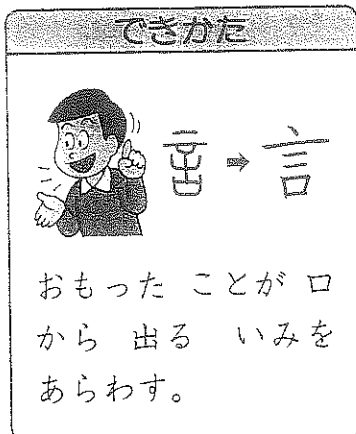 できかた
→ 言
おもった ことが 口
から 出る いみを
あらわす。